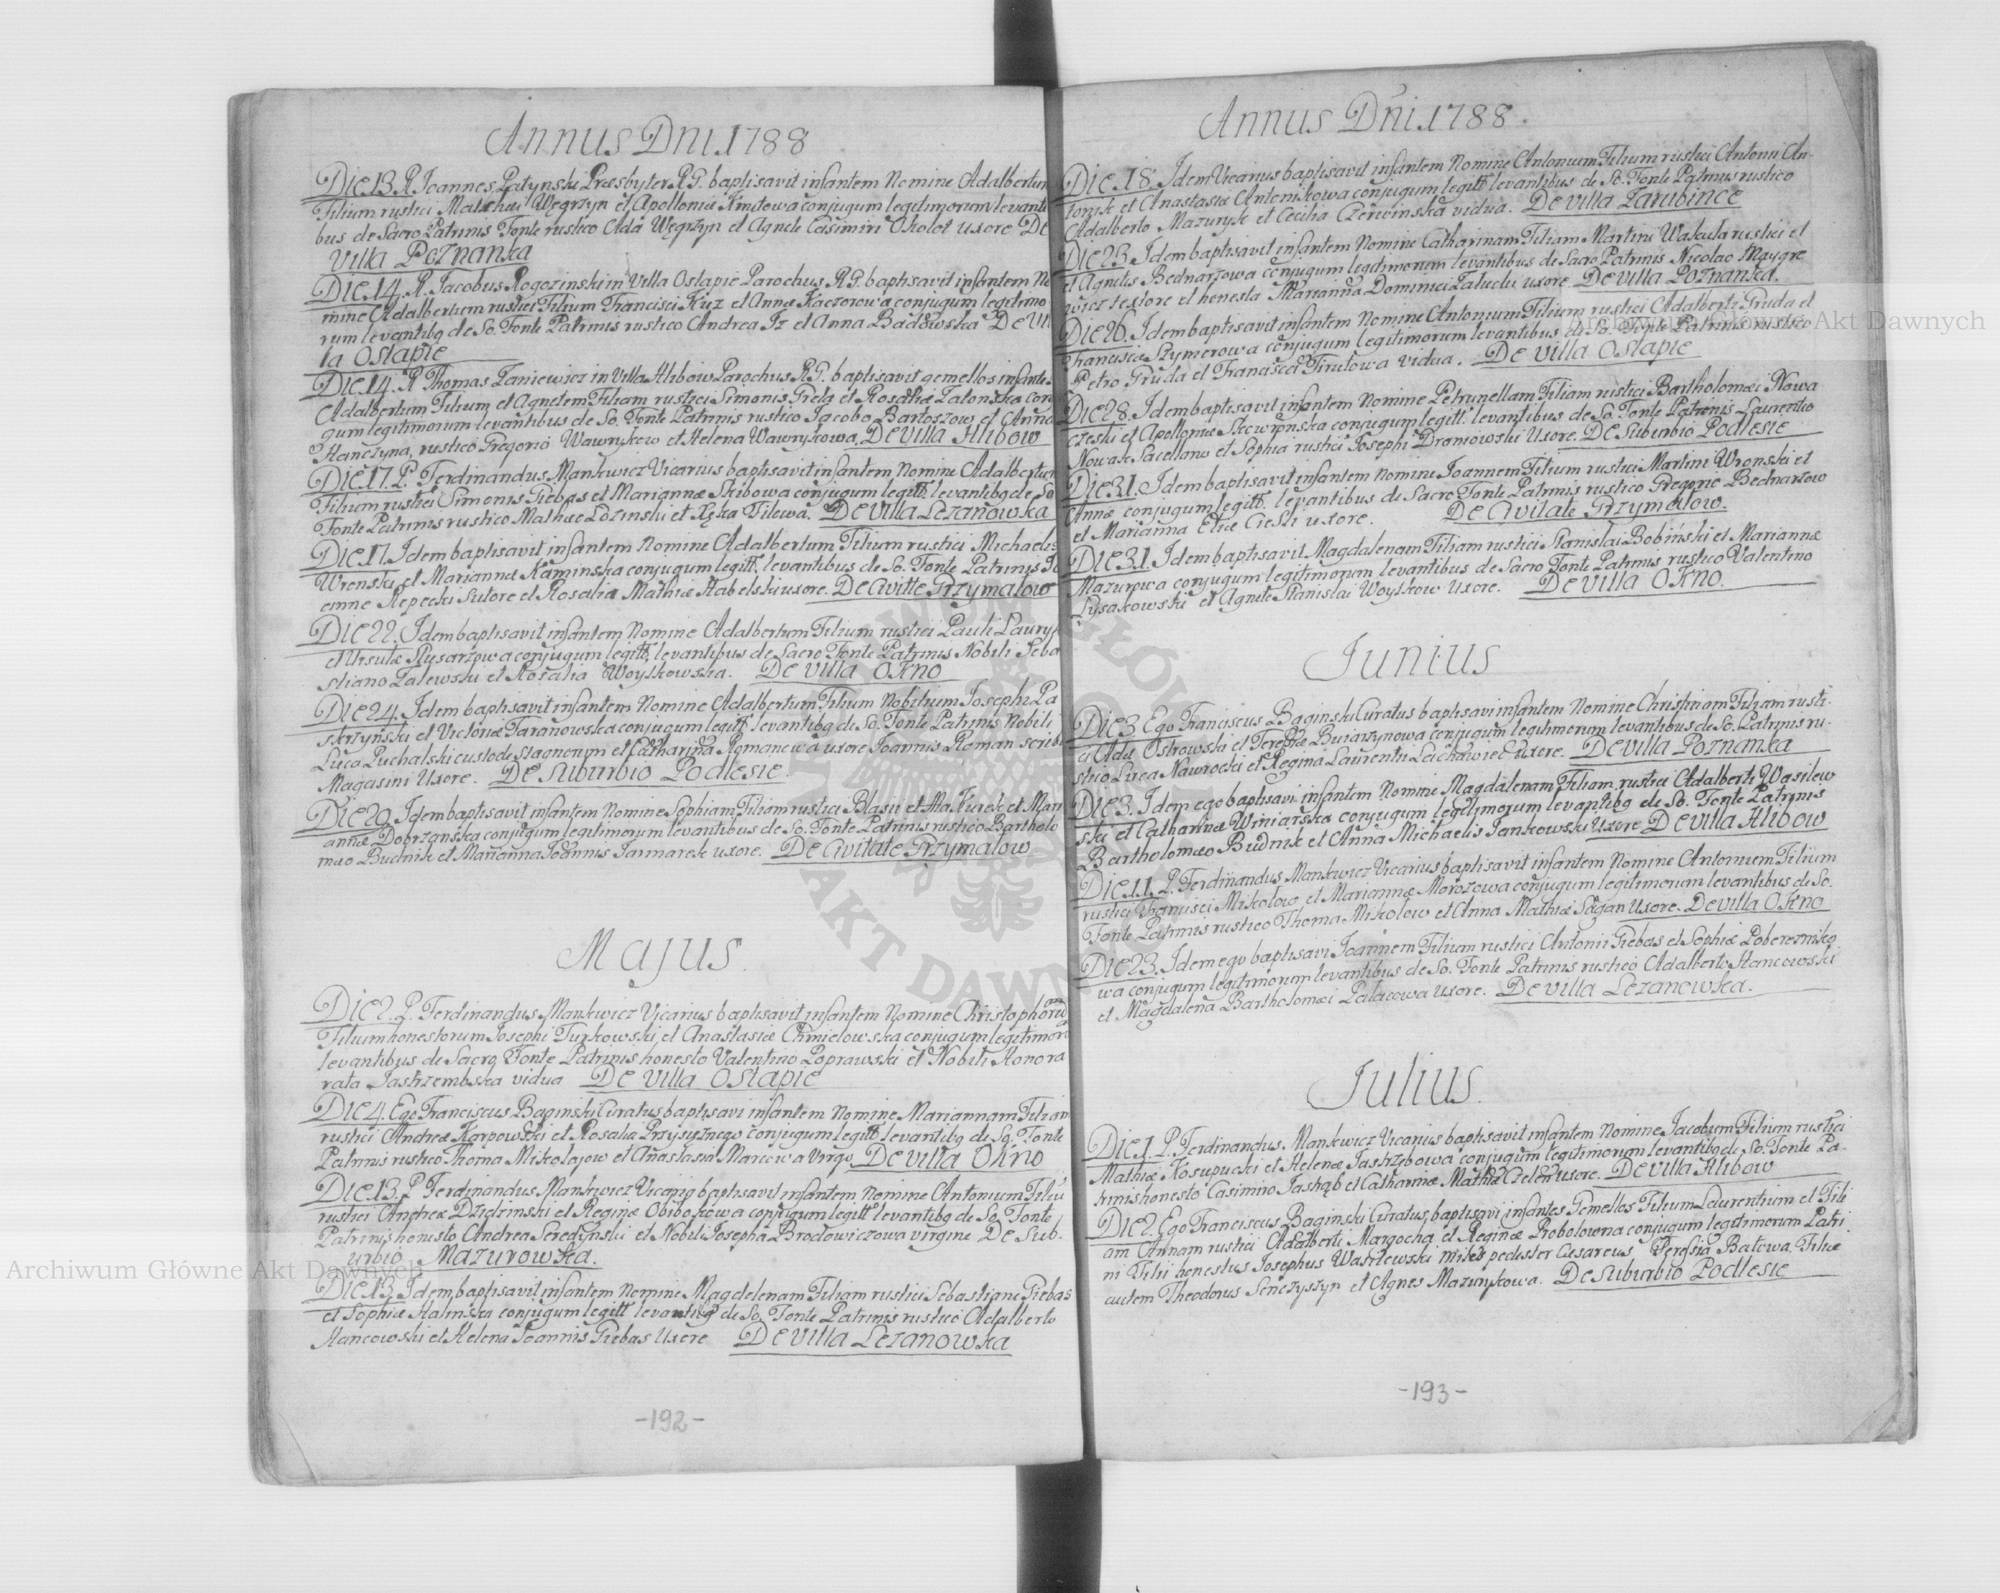 Annus Dni 1788
Die 13. R. Joannes Patynski Præsbyter R.G. baptisavit infantem Nomine Adalbertum
Filium rustici Mathæi Węgrzyn et Apolloniæ Kmitowa conjugum legitimorum levanti
bus de Sacro Fonte Patrinis rustico Ada Węgrzyn et Agnete Casimiri Okolot uxore De
Villa Poznanka
Die 14. R. Jacobus Rogozinski in Villa Ostapie Parochus R.G. baptisavit infantem No
mine Adalbertum rustici Filium Francisci Kuz et Annæ Kaczorowa conjugum legitimo
rum levantibq de So. Fonte Patrinis rustico Andrea Jz et Anna Badowska De Vil
la Ostapie
Die 14. R. Thomas Zaniewicz in Villa Hlibow Parochus R.G. baptisavit gemellos infantes
Adalbertum Filium et Agnetem Filiam rustici Simonis Grela et Rosaliæ Zalonska conj
gum legitimorum levantibus de So. Fonte Patrinis rustico Jacobo Bartoszow et Anna
Hanczyna, rustico Gregorio Wawrykow et Helena Wawrykowa. De Villa Hlibow
Die 17. P. Ferdinandus Mankwicz Vicarius baptisavit infantem Nomine Adalbertum
Filium rustici Simonis Giebas et Mariannæ Skibowa conjugum legitt. levantibq de So
Fonte Patrinis rustico Mathæo Lozinski et Filewa. De Villa Lezanowka
Die 17. Idem baptisavit infantem Nomine Adalbertum Filium rustici Michaelis
Wronski et Mariannæ Kaminska conjugum legitt. levantibus de So. Fonte Patrinis Jo
anne Repecki Sutore et Rosalia Mathiæ Habelski uxore. De Civitte Grzymalow
Die 22. Idem baptisavit infantem Nomine Adalbertum Filium rustici Pauli Lauryk
et Ursulæ Slusarzowa conjugum legitt. levantibus de Sacro Fonte Patrinis Nobili Seba
stiano Zalewski et Rosalia Woytkowska. De Villa Okno
Die 24. Idem baptisavit infantem Nomine Adalbertum Filium Nobilium Josephi Za
skrzynski et Victoriæ Taranowska conjugum legitt. levantibq de So. Fonte Patrinis Nobili
Luca Puchalski custode stagnorum et Catharina Romanowa uxore Joannis Roman scribæ
Magasini Uxore. De Suburbio Podlesie.
Die 29. Idem baptisavit infantem Nomine Sophiam Filiam rustici Blasii Kurek et Mari
annæ Dobrzanska conjugum legitimorum levantibus de So. Fonte Patrinis rustico Bartholo
mæo Budnik et Marianna Joannis Jarmarek uxore. De Civitate Grzymalow
Majus.
Die 2. P. Ferdinandus Mankwicz Vicarius baptisavit infantem Nomine Christophorum
Filium honestorum Josephi Turkowski et Anastasiæ Chmielowska conjugum legitimor
levantibus de Sacro Fonte Patrinis honesto Valentino Poprawski et Nobili Honora
rata Jastrzembska vidua De Villa Ostapie
Die 4. Ego Franciscus Baginski Curatus baptisavi infantem Nomine Mariannam Filiam
rustici Andreæ Karpowski et Rosalia Przysiężnego conjugum legitt. levantibq de So. Fonte
Patrinis rustico Thoma Mikolajow et Anastasia Marcowa virgo De Villa Okno
Die 13. P. Ferdinandus Mankwicz Vicariq baptisavit infantem Nomine Antonium Filiu
rustici Andreæ Dziedzinski et Reginæ Obibokowa conjugum legitt. levantibq de So. Fonte
Patrinis honesto Andrea Seredynski et Nobili Josepha Brodowiczowa virgine De Sub-
urbio Mazurowka.
Die 13. Idem baptisavit infantem Nomine Magdelenam Filiam rustici Sebastiani Giebas
et Sophiæ Halinska conjugum legitt. levantibq de So. Fonte Patrinis rustico Adalberto
Hancowski et Helena Joannis Giebas Uxore De Villa Lezanowka
-192-
Annus Dni 1788.
Die 18. Idem Vicarius baptisavit infantem Nomine Antonium Filium rustici Antonii An-
toniik et Anastasiæ Antoniikowa conjugum legitt. levantibus de So. Fonte Patrinis rustico
Adalberto Mazuryk et Cecilia Czerwinska vidua. De Villa Zarubince
Die 23. Idem baptisavit infantem Nomine Catharinam Filiam Martini Wakula rustici et
et Agnetis Bednarzowa conjugum legitimorum levantibus de Sacro Patrinis Nicolao Maygre
wicz textore et honesta Marianna Dominici Zaluclu uxore De Villa Poznanka.
Die 26. Idem baptisavit infantem Nomine Antonium Filium rustici Adalberti Gruda et
Franciscæ Szymerowa conjugum legitimorum levantibus de So. Fonte Patrinis rustico
Petro Gruda et Francisca Firutowa vidua. De Villa Ostapie
Die 28. Idem baptisavit infantem Nomine Petrunellam Filiam rustici Bartholomæi Nowa
czeski et Apolloniæ Skowronska conjugum legitt. levantibus de So. Fonte Patrinis Laurentio
Nowak Sacellano et Sophia rustici Josephi Draniowski Uxore. De Suburbio Podlesie
Die 31. Idem baptisavit infantem Nomine Joannem Filium rustici Martini Wronski et
Annæ conjugum legitt. levantibus de Sacro Fonte Patrinis rustico Gregorio Bednarzow
et Marianna Eliæ Ciesli uxore. De Civitate Grzymalow.
Die 31. Idem baptisavit Magdalenam Filiam rustici Stanislai Bobinski et Mariannæ
Mazurowa conjugum legitimorum levantibus de Sacro Fonte Patrinis rustico Valentino
Lysakowski et Agnete Stanislai Woytkow Uxore. De Villa Okno.
Junius
Die 3 Ego Franciscus Baginski Curatus baptisavi infantem Nomine Christinam Filiam rusti-
ci Adæ Ostrowski et Teressæ Buiarzynowa conjugum legitimorum levantibus de So. Patrinis ru-
stico Luca Nawrocki et Regina Laurentii Leichawiec uxore. De Villa Poznanka
Die 3. Idem ego baptisavi infantem Nomine Magdalenam Filiam rustici Adalberti Wasilew
ski et Catharinæ Winiarska conjugum legitimorum levantibq de So. Fonte Patrinis
Bartholomæo Budnik et Anna Michaelis Jankowski Uxore De Villa Hlibow
Die 11. P. Ferdinandus Mankwicz Vicarius baptisavit infantem Nomine Antonium Filium
rustici Francisci Mikolow et Mariannæ Morozowa conjugum legitimorum levantibus de So.
Fonte Patrinis rustico Thoma Mikolow et Anna Mathiæ Sagan Uxore. De Villa Okno
Die 23. Idem ego baptisavi Joannem Filium rustici Antonii Giebas et Sophiæ Poberezniko
wa conjugum legitimorum levantibus de So. Fonte Patrinis rustico Adalberto Hancowski
et Magdalena Bartholomæi Palacowa Uxore. De Villa Lezanowka.
Julius.
Die 1. P. Ferdinandus Mankwicz Vicarius baptisavit infantem Nomine Jacobum Filium rustici
Mathiæ Kosupucki et Helenæ Jastrzębowa conjugum legitimorum levantibq de So. Fonte Pa-
trinis honesto Casimiro Jastrąb et Catharina Mathiæ Czelen uxore. De Villa Hlibow
Die 2. Ego Franciscus Baginski Curatus baptisavi infantes Gemellos Filium Laurentium et Fili
am Annam rustici Adalberti Margocha et Reginæ Probolowna conjugum legitimorum Patri-
ni Filii honestus Josephus Wasilewski miles pedester Cæsareus Theresia Batowa. Filiæ
autem Theodorus Seneczyszyn et Agnes Mazurykowa. De Suburbio Podlesie
-193-
Archiwum Główne Akt Dawnych
Archiwum Główne Akt Dawnych
ARCHIWUM GŁÓWNE AKT DAWNYCH